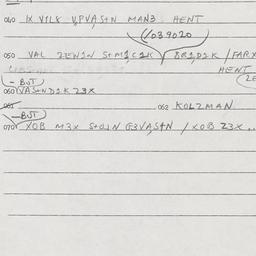 040 IX VILK VPVASTN MAN3 HENT
(/039020
050 VAL ZEW1N STM1C1K / 8R1D1K / FARX
HENT
- BUT
060 VASTND1K Z3X
061 062 KOLZMAN
- BUT
070 XOB M3X STOJN G3VASTN / XOB Z3X ..